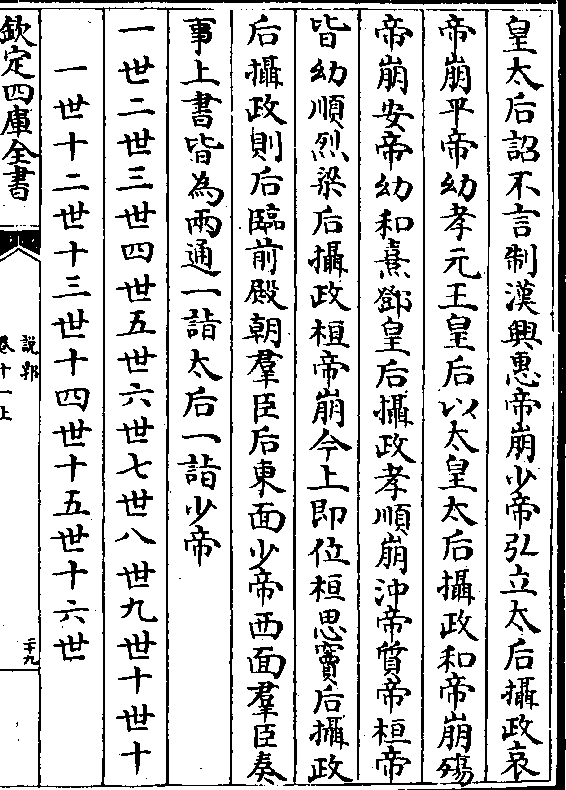 皇太后詔不言制漢興惠帝崩少帝弘立太后攝政哀
帝崩平帝幼孝元王皇后以太皇太后攝政和帝崩殤
帝崩安帝幼和熹鄧皇后攝政孝順崩沖帝質帝桓帝
皆幼順烈梁后攝政桓帝崩今上即位桓思竇后攝政
后攝政則后臨前殿朝羣臣后東面少帝西面羣臣奏
事上書皆為兩通一詣太后一詣少帝
一世二世三世四世五世六世七世八世九世十世十
一世十二世十三世十四世十五世十六世
欽定四庫全書
說郛
卷十一上
二十九